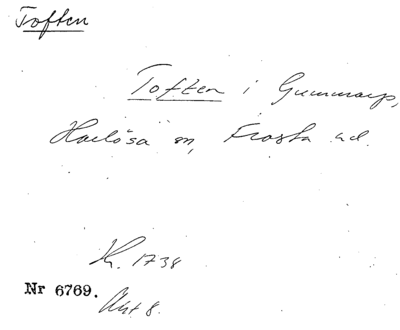 Toften
Toften i Gummarp,
Harlösa sn, Frosta hd.
K. 1738
Nr 6769.
Akt 8.